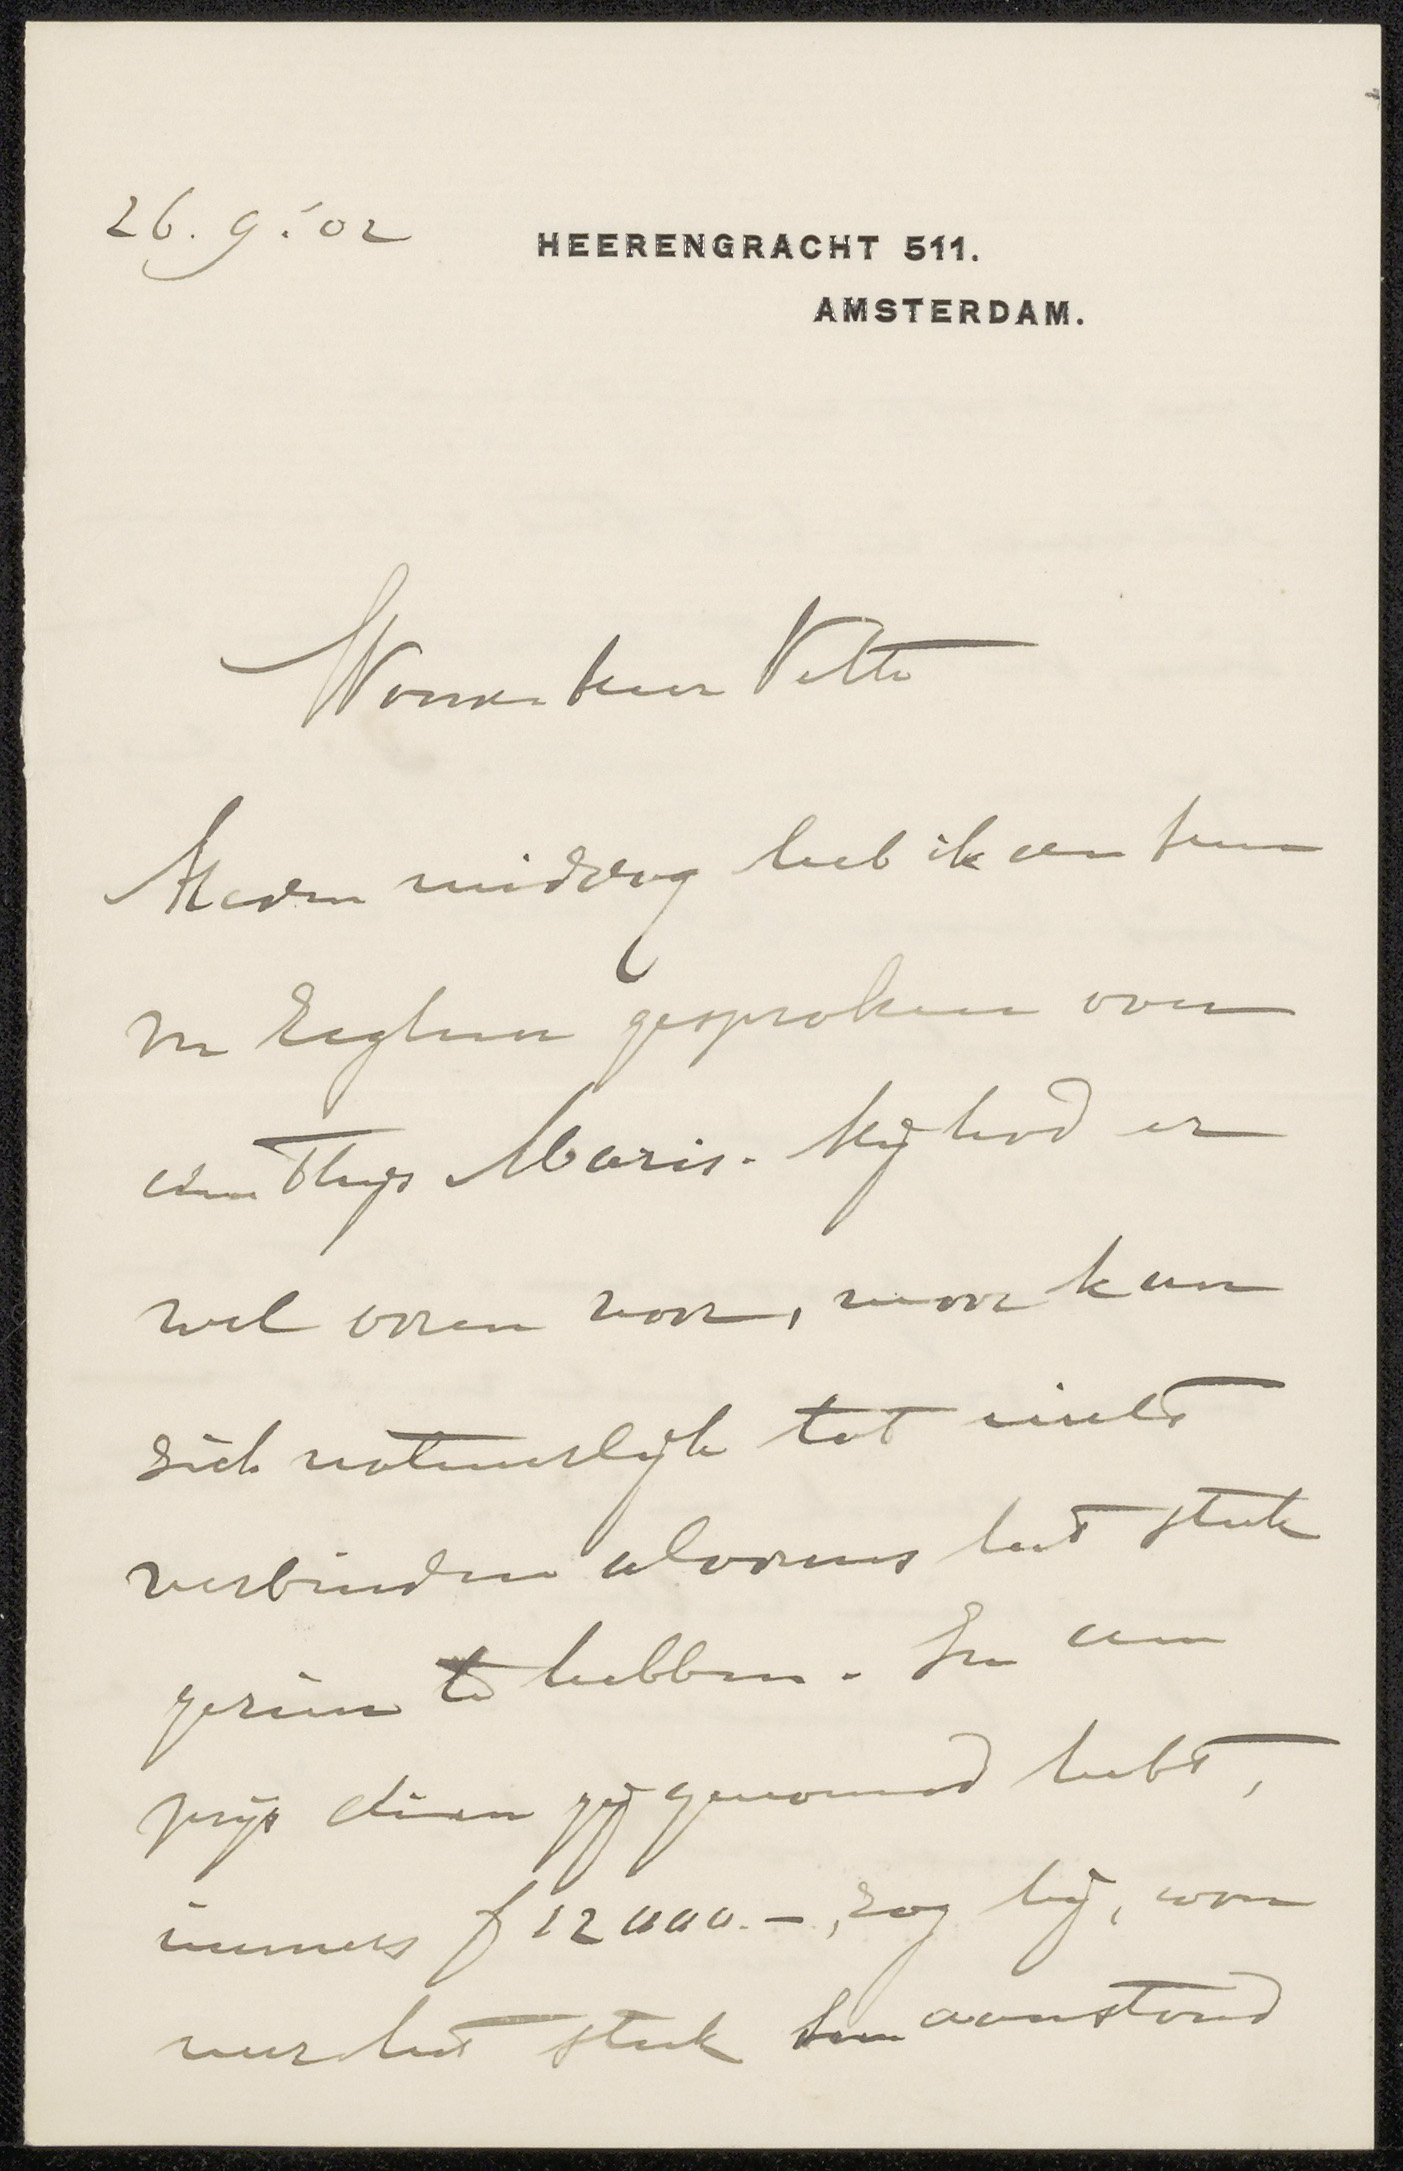 26.9.'02
HEERENGRACHT 511.
AMSTERDAM.
Waarde heer Veth
Heden middag heb ik den heer
v Eeghen gesproken over
den Thijs Maris. Hij had er
wel ooren voor, maar kan
zich natuurlijk tot niets
verbinden alvorens het stuk
gezien te hebben. En een
prijs dien gij genoemd hebt,
immers f 12000.-, zag hij, wan
neer het stuk hem aanstond